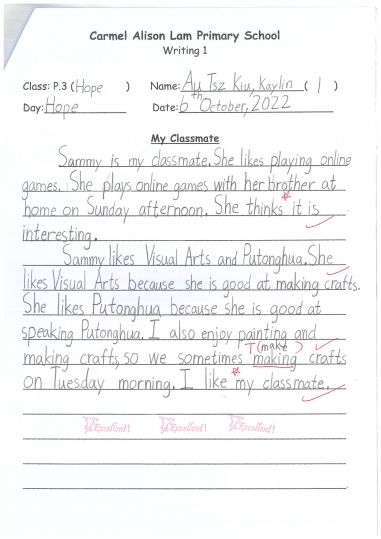 Carmel Alison Lam Primary School
Writing 1
Class: P.3 (Hope ) Name: Au Tsz Kiu, Kaylin ( 1 )
Day: Hope Date: 6th October, 2022
My Classmate
Sammy is my classmate. She likes playing online
games. She plays online games with her brother at
home on Sunday afternoon. She thinks it is
interesting.
Sammy likes Visual Arts and Putonghua. She
likes Visual Arts because she is good at making crafts.
She likes Putonghua because she is good at
speaking Putonghua. I also enjoy painting and
T (make )
making crafts, so we sometimes making crafts
on Tuesday morning. I like my classmate.
Excellent! Excellent! Excellent!